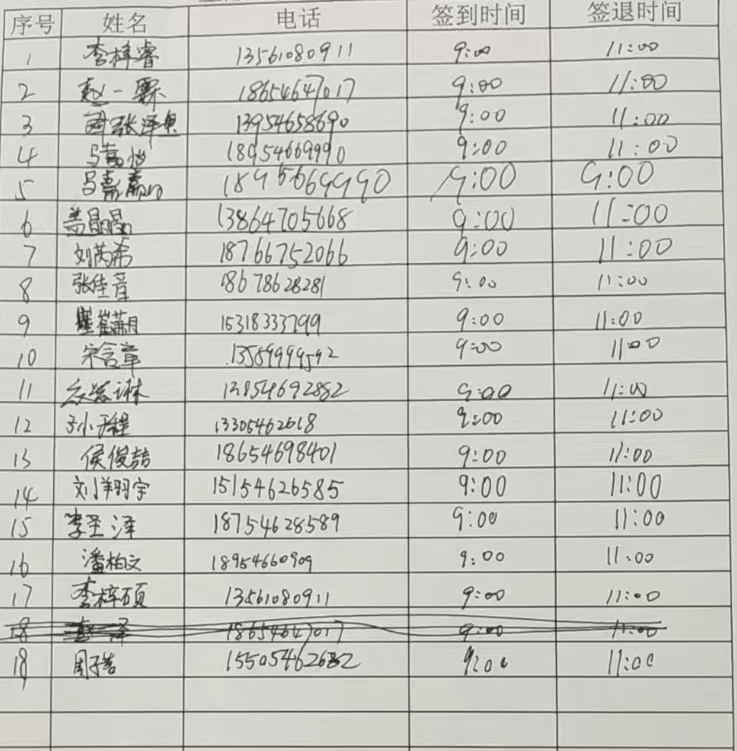 序号 姓名 电话 签到时间 签退时间
1 李梓睿 13561080911 9:00 11:00
2 赵一霖 18654647017 9:00 11:00
3 张泽 13954658690 9:00 11:00
4 马嘉怡 18954669990 9:00 11:00
5 1895669990 9:00 9:00
6 盖晶晶 13864705668 9:00 11:00
7 刘芮希 18766752066 9:00 11:00
8 张佳音 18678628281 9:00 11:00
9 15318333799 9:00 11:00
10 宋含章 9:00 11:00
11 9:00 11:00
12 13305462618 9:00 11:00
13 侯俊喆 18654698401 9:00 11:00
14 刘翔宇 15154626585 9:00 11:00
15 李圣泽 18754628589 9:00 11:00
16 潘柏文 18954660909 9:00 11:00
17 李梓硕 13561080911 9:00 11:00
18 18654647017 9:00 11:00
18 周子浩 15505462682 9:00 11:00